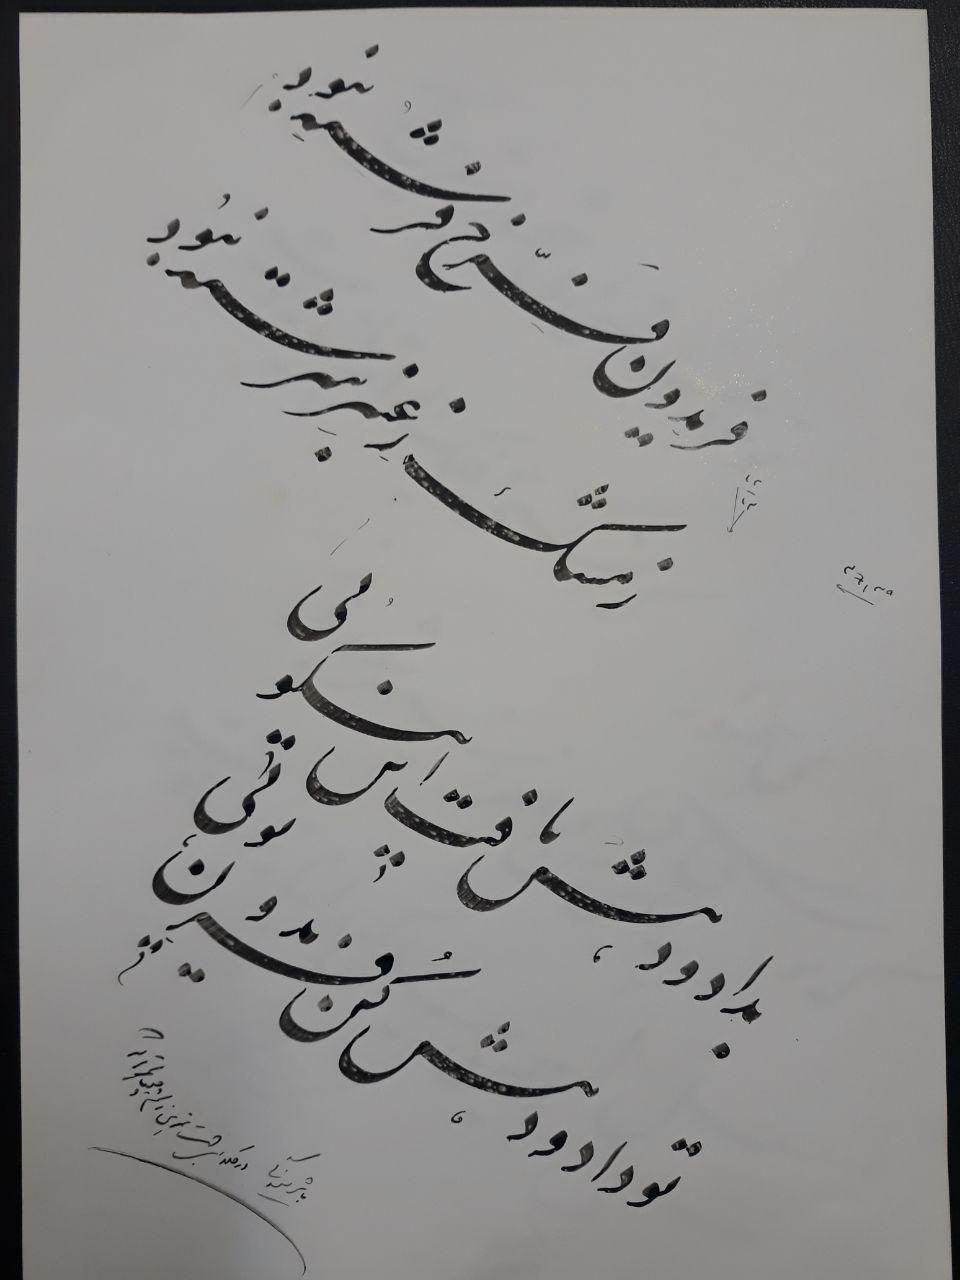 فریدون فرّخ فرشته نبود
ز مشک و ز عنبر سرشته نبود
بداد و دهش یافت این نیکوئی
تو داد و دهش کن فریدون توئی